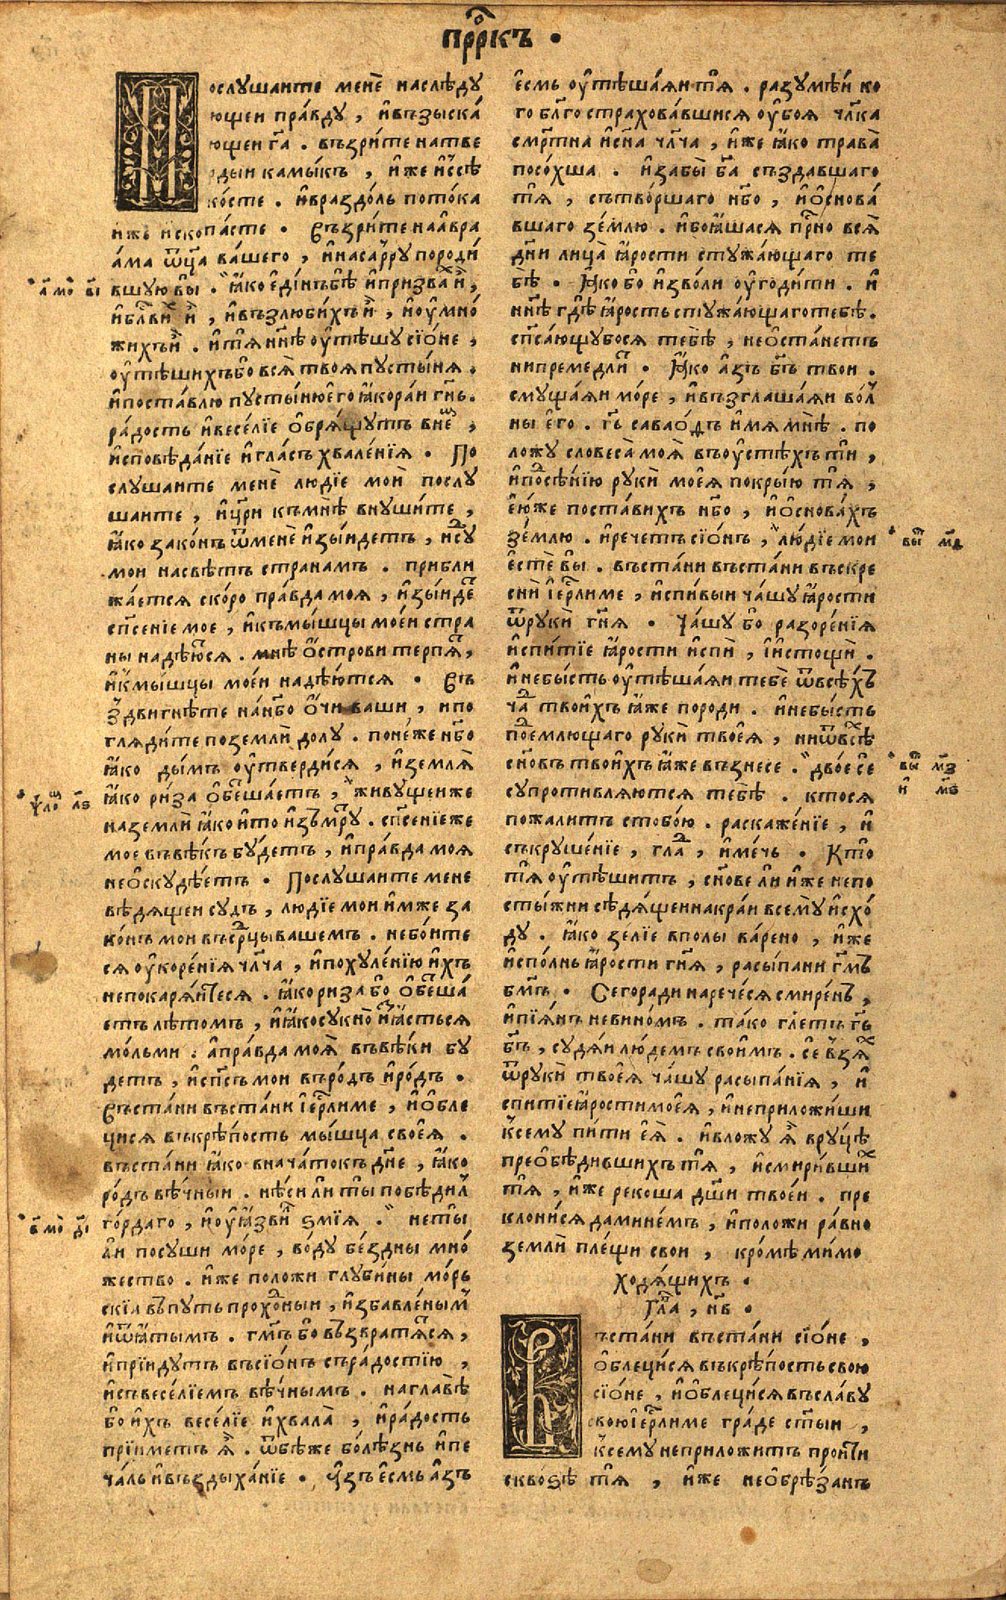 прⷪ҇ркъ •
Послушаите менѐ наслѣду
ющеи пра́вду , и҆взыска́
ющеи га҃ . възри́те натве
рдыи ка́мыкъ , и҆же и҆ссѣ
ко́сте . и҆враздо́ль пото́ка
иже и҆скопа́сте • Възри́те наавра
а́ма ѿц҃а ва́шего , и҆наса́рру породи́
вшую вы̀ . ꙗ҆ко е҆ди́нъ бѣ̀ и҆призва̀х и҆̀ ,
и҆блⷭ҇ви́х и҆̀ , и҆възлюби́хъ и҆̀ , и҆оу҆мно́
жихъ и҆̀ . и҆тѧ̀ нн҃ѣ оу҆тѣшу сїо́не ,
оу҆тѣшихъ бо всѧ̀ твоѧ̀ пусты́нѧ .
и҆поста́влю пусты́ню е҆го̀ ꙗ҆кора́и гн҃ь .
ра́дость и҆весе́лїе ѻ҆брѧ́щутъ вне́и ,
и҆сповѣ́данїе и҆гла́съ хвале́нїѧ . По
слушаите менѐ лю́дїе моѝ послу
шаите , и҆цр҃и къмнѣ̀ внуши́те ,
ꙗ҆ко зако́нъ ѿменѐ и҆зы́идетъ , и҆су́д
мои насвѣ́тъ страна́мъ . прибли
жа́етсѧ ско́ро пра́вда моѧ̀ , и҆зы́иде
сп҃се́нїе мое , и҆къмы́шцы мое́и стра
ны надѣ́ютсѧ . мнѐ ѻ҆́строви те́рпѧт ,
и҆кмы́шцы мое́и надѣ́ютсѧ • Въ
здви́гнѣте нан҃бо ѻ҆́чи ва́ши , и҆по
глѧди́те поземлѝ до́лу . поне́же нб҃о
ꙗ҆ко ды́мъ оу҆тверди́сѧ , и҆землѧ̀
ꙗ҆ко ри́за ѻ҆бетша́етъ , живу́щеиже
наземлѝ ꙗ҆ко и҆то и҆зъмру́т . сп҃се́нїеже
мое въвѣ́къ бу́детъ , и҆пра́вда моѧ
неѻ҆скудѣ́етъ • Послушаите мене
вѣ́дѧщеи су́дъ , лю́дїе мои и҆́мже за
ко́нъ мои въсрⷣцы ва́шемъ . небо́ите
сѧ оу҆коре́нїѧ чл҃ча , и҆похуле́нїю и҆́хъ
непокарѧ́итесѧ . ꙗ҆ко риза бо ѻ҆бетша́
етъ лѣ́томъ , и҆ꙗ҆ко сукно̀ и҆зꙗ́стьсѧ
мо́льми . а҆пра́вда моѧ̀ въвѣ́ки бу
детъ , и҆сп҃съ мои въро́дъ и҆ро́дъ •
Въста́ни въста́ни і҆ерⷭ҇ли́ме , и҆ѻ҆бле
цисѧ въкрѣ́пость мы́шца своеѧ̀ .
въста́ни ꙗ҆ко внача́токъ дн҃е , ꙗ҆ко
ро́дъ вѣ́чныи . нѣ́си ли ты̀ побѣди́л
го́рдаго , и҆оу҆ꙗ҆зви́л ѕмїѧ . не ты̀
ли посуши мо́ре , во́ду бе́здны мно́
жество . и҆же положи глуби́ны мо́рь
скїѧ въпуть прохо́дныи , и҆збавле́ным
и҆ѿꙗ́тымъ . гм҃ъ бо възвратѧ́тсѧ ,
и҆прїи́дутъ въсїо́нъ съра́достїю ,
и҆съвесе́лїемъ вѣ́чнымъ . наглавѣ̀
бо и҆́хъ весе́лїе и҆хвала̀ , и҆ра́дость
прїиметъ ѧ҆̀ . ѿбѣ́же болѣ́знь и҆пе
ча́ль и҆въздыха́нїе • А҆́зъ е҆смь а҆́зъ
е҆смь оу҆тѣша́ѧи тѧ̀ . разумѣ́и ко
го бл҃го страхова́вшисѧ оу҆боѧ чл҃ка
сме́ртна и҆сн҃а чл҃ча , и҆́же ꙗ҆ко трава̀
посо́хша . и҆забы̀ ба҃ създа́вшаго
тѧ̀ , сътво́ршаго нб҃о , и҆ѻ҆снова́
вшаго зе́млю . и҆боꙗ́шасѧ при́сно всѧ̀
дн҃и лица̀ ꙗ҆́рости стужа́ющаго те
бѣ̀ • Ꙗ҆ко бо и҆зво́ли оу҆годи́ти . и҆
нн҃ѣ гдѣ̀ ꙗ҆́рость стужа́ющаго тебѣ̀ .
сп҃са́ющубосѧ тебѣ̀ , неѻ҆ста́нетъ
нипреме́длит • Ꙗ҆ко а҆́зъ бг҃ъ твои .
смуща́ѧи мо́ре , и҆възглаша́ѧи во́л
ны е҆го . гь҃ савао́ѳъ и҆́мѧ мнѣ̀ . по
ложу словеса̀ моѧ̀ въоу҆стѣ́хъ ти̂ ,
и҆подсѣ́нїю руки̂ моеѧ̀ покры́ю тѧ̀ ,
е҆ю́же поста́вихъ нб҃о , и҆ѻ҆снова́хъ
зе́млю . и҆рече́тъ сїо́нъ , лю́дїе мои
е҆стѐ вы̀ . въста́ни въста́ни въскре
снѝ і҆ерⷭ҇ли́ме , и҆спи́выи ча́шу ꙗ҆́рости
ѿрукѝ гн҃ѧ • Ча́шу бо разоре́нїѧ
и҆спи́тїе ꙗ҆́рости и҆спѝ , и҆и҆стощѝ .
и҆небы́сть оу҆тѣша́ѧи тебѐ ѿвсѣ́хъ
ча́д твои́хъ ꙗ҆́же породи . и҆небы́сть
подъе́млющаго руки̂ твоеѧ̀ , ниѿвсѣ́х
сн҃о́въ твои́хъ ꙗ҆́же възнесе . двое сѐ
супротивлѧ́ютсѧ тебѣ̀ . кто́сѧ
пожалитъ стобо́ю . раскаже́нїе , и҆
съкруше́нїе , гла́д , и҆ме́чь • Кто̀
тѧ̀ оу҆тѣшитъ , сн҃ове ли и҆же непо
сты́жни сѣдѧ́щеи накра́и всему̀ и҆схо́
ду . ꙗ҆ко зе́лїе вполы ва́рено , и҆же
и҆спо́лнь ꙗ҆́рости гн҃ѧ , расы́пани гм҃ъ
бг҃мъ • Сегора́ди нарече́сѧ смире́нъ ,
и҆пїѧ́нъ невино́мъ . тако гл҃етъ гь҃
бг҃ъ , судѧ́и лю́демъ свои́мъ . сѐ взѧ́х
ѿрукѝ твоеѧ̀ ча́шу расыпа́нїѧ , и҆
спи́тїе ꙗ҆́рости моеѧ̀ , и҆неприложи́ши
ксему̀ пи́ти е҆ѧ̀ . и҆вложу̀ ѧ҆̀ вру́цѣ
преѻ҆бѣ́дившихъ тѧ̀ , и҆смири́вших
тѧ̀ , и҆же рекоша дш҃и твое́и . пре
клони́сѧ дамине́мъ , и҆положи ра́вно
землѝ пле́щи свои , кро́мѣ мимо
ходѧ́щихъ .
Гла́ , нв҃ •
Въста́ни въста́ни сїо́не ,
ѻ҆блеци́сѧ въкрѣ́пость свою
сїо́не , и҆ѻ҆блеци́сѧ въсла́ву
свою і҆ерⷭ҇ли́ме гра́де ст҃ыи ,
ксему неприложитъ проити̂
сквоѕѣ̀ тѧ̀ , и҆́же неѻ҆брѣ́занъ